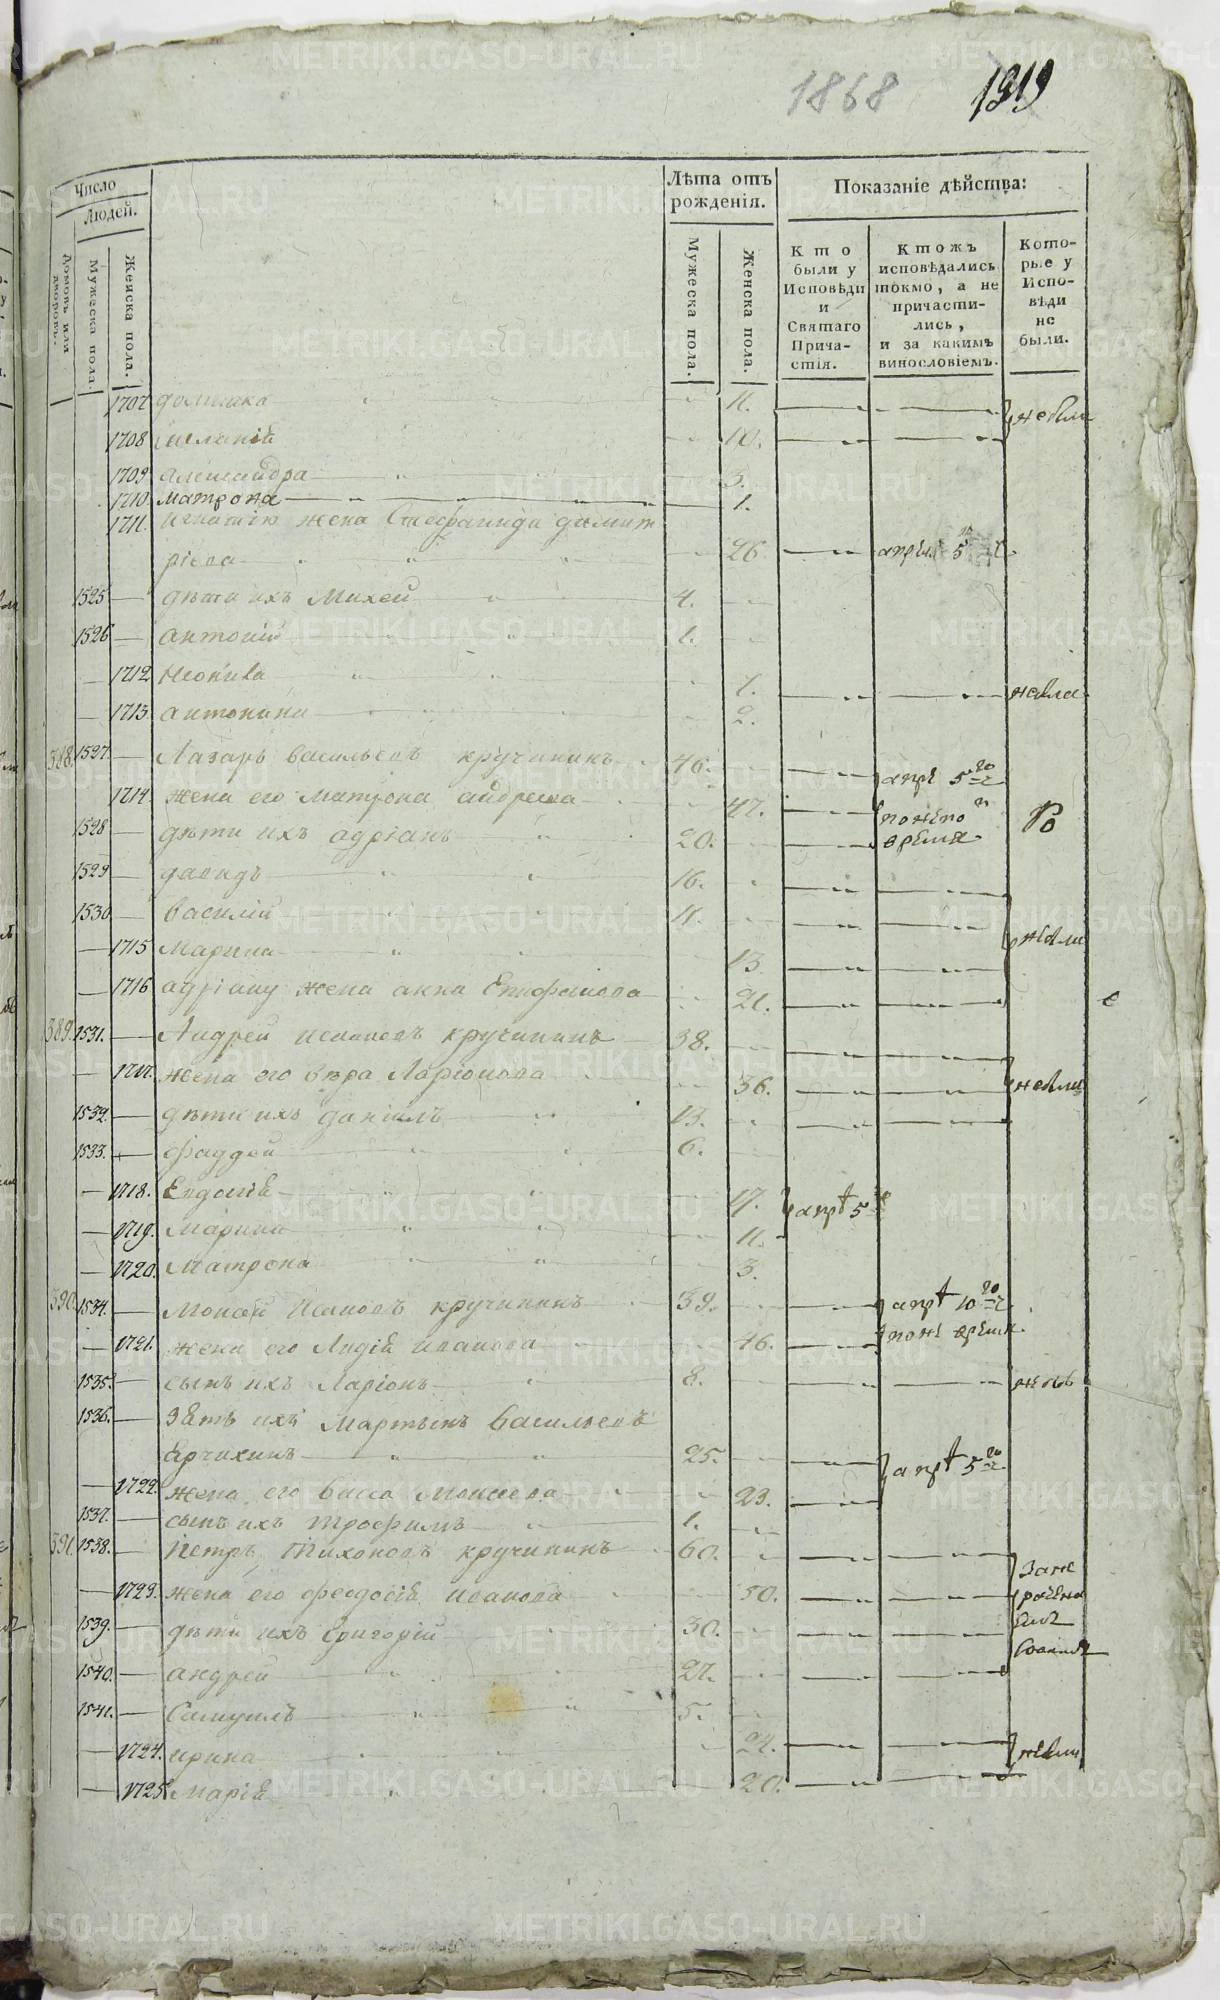 1868 1319
Число
Людей.
Домовъ или дворовъ.
Мужеска пола.
Женска пола.
Лѣта отъ рожденія.
Мужеска пола.
Женска пола.
Показаніе дѣйства:
Кто были у Исповѣди и Святаго Причастія.
Ктожъ исповѣдались токмо, а не причастились, и за какимъ винословіемъ.
Которые у Исповѣди не были.
1707 11.
1708 10.
1709 Александра 3.
1710 Матрона 1.
1711. Игнатію жена Стефанида димит
ріева 26 5
1525 дѣти ихъ Михей 4.
1526 антоній 1.
1712 Неонила 7.
1713. антонина 2.
388. 1527. Лазарь васильевъ кручининъ 46. апрѣ 5
1714 жена его матрона андреева 47.
1528 дѣти ихъ адріанъ 20. время
1529 давидъ 16.
1530 василій 11.
1715 Марина 13.
1716 адріану жена анна Епифанова 21.
389. 1531. Андрей Ивановъ кручининъ 38.
1717. жена его вѣра Ларіонова 36.
1532. дѣти ихъ даніилъ 13.
1533. фаддей 6.
1718. 17. апр 5
1719. Марина 11.
1720. Матрона 3.
390. 1534. Мокей Ивановъ кручининъ 39. апр 10
1721. жена его Лидіѣ иванова 46. время
1535. сынъ ихъ Ларіонъ 8.
1536. Зять ихъ Мартынъ Васильевъ
25. апр 5
1722. жена его васса Мокеева 23.
1537. сынъ ихъ трофимъ 1.
391. 1538. Петръ Тихоновъ кручининъ 60.
1723. жена его феодосіѣ иванова 50.
1539. дѣти ихъ григорій 30.
1540. андрей 27.
1541. Самуилъ 5.
1724. ирина 24.
1725. Маріѣ 20.
METRIKI.GASO-URAL.RU